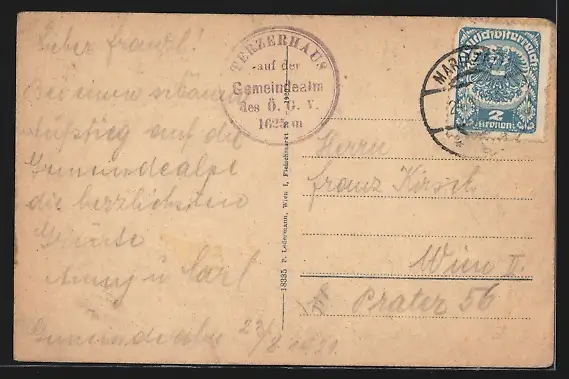 Lieber Franzl!
Bei einem schönen
Aufstieg auf die
Gemeindealpe
die herzlichsten
Grüsse
Anny u Carl
Gemeindealpe 23/8
TERZERHAUS
auf der
Gemeindealm
des Ö. G. V.
1623 m
18335 P. Ledermann, Wien I, Fleischmarkt
Deutschösterreich
2
Kronen
MARIA
Herrn
Franz Kirsch
Wien II.
Prater 56